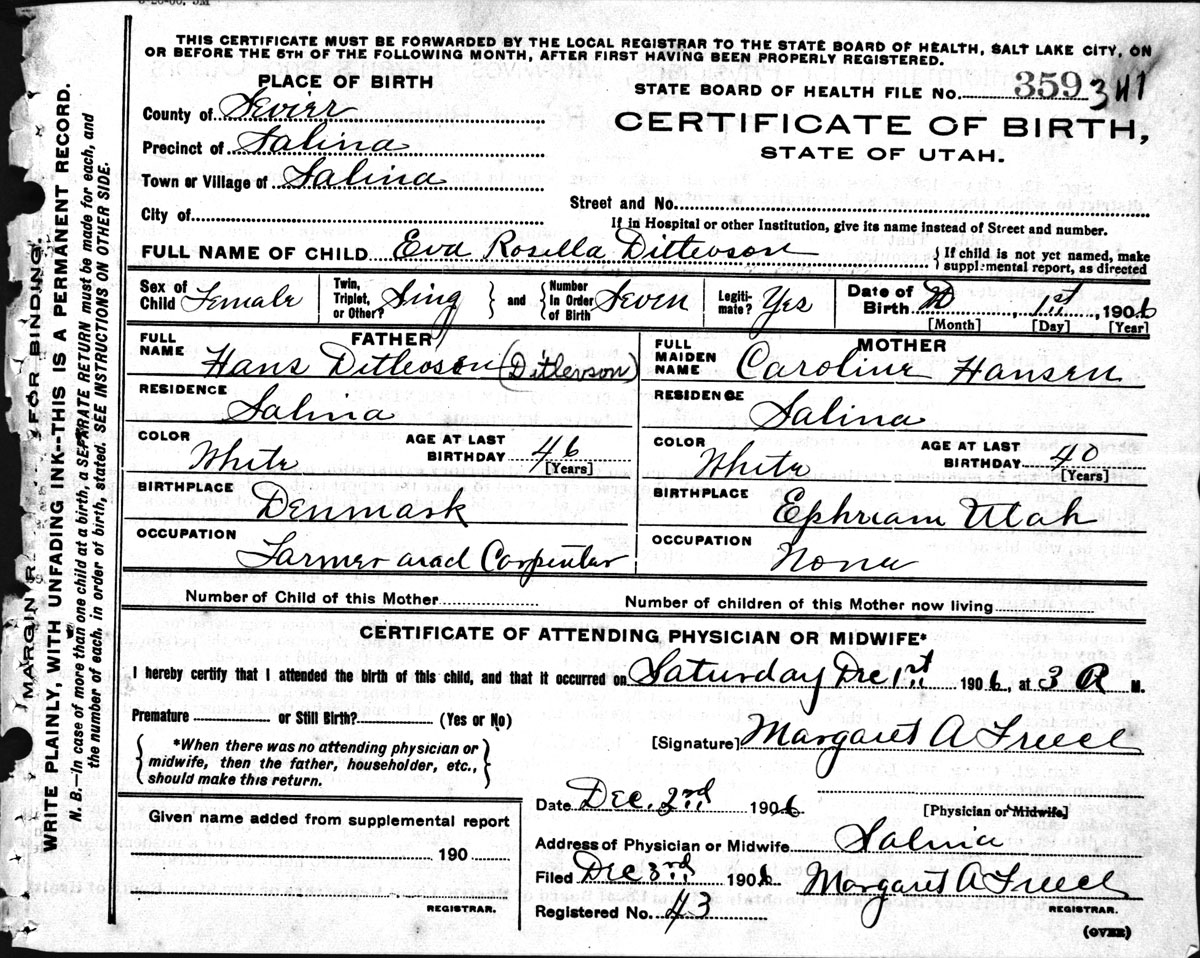 THIS CERTIFICATE MUST BE FORWARDED BY THE LOCAL REGISTRAR TO THE STATE BOARD OF HEALTH, SALT LAKE CITY, ON
OR BEFORE THE 5TH OF THE FOLLOWING MONTH, AFTER FIRST HAVING BEEN PROPERLY REGISTERED.
PLACE OF BIRTH
STATE BOARD OF HEALTH FILE No. 359 341
County of Sevier
CERTIFICATE OF BIRTH,
Precinct of Salina
STATE OF UTAH.
Town or Village of Salina
City of
Street and No.
If in Hospital or other Institution, give its name instead of Street and number.
FULL NAME OF CHILD Eva Rosella Ditlevson { If child is not yet named, make supplemental report, as directed
Sex of Child Female Twin, Triplet, or Other? Sing } and { Number In Order of Birth Seven Legiti-mate? Yes Date of Birth 1st, 1906
[Month] [Day] [Year]
FATHER
FULL NAME Hans Ditlevson (Ditlevson)
RESIDENCE Salina
COLOR White AGE AT LAST BIRTHDAY 46 [Years]
BIRTHPLACE Denmark
OCCUPATION Farmer and Carpenter
MOTHER
FULL MAIDEN NAME Caroline Hansen
RESIDENCE Salina
COLOR White AGE AT LAST BIRTHDAY 40 [Years]
BIRTHPLACE Ephriam Utah
OCCUPATION None
Number of Child of this Mother Number of children of this Mother now living
CERTIFICATE OF ATTENDING PHYSICIAN OR MIDWIFE*
I hereby certify that I attended the birth of this child, and that it occurred on Saturday Dec 1st 1906, at 3 A M.
Premature or Still Birth? (Yes or No)
*When there was no attending physician or
midwife, then the father, householder, etc.,
should make this return.
[Signature] Margaret A Freece
Date Dec. 2nd 1906
[Physician or Midwife]
Address of Physician or Midwife Salina
Filed Dec 3rd 1906 Margaret A Freece
Registered No. 43 REGISTRAR.
(OVER)
Given name added from supplemental report
190
REGISTRAR.
(MARGIN R FOR BINDING.
WRITE PLAINLY, WITH UNFADING INK--THIS IS A PERMANENT RECORD.
N. B.—In case of more than one child at a birth, a SEPARATE RETURN must be made for each, and
the number of each, in order of birth, stated. SEE INSTRUCTIONS ON OTHER SIDE.